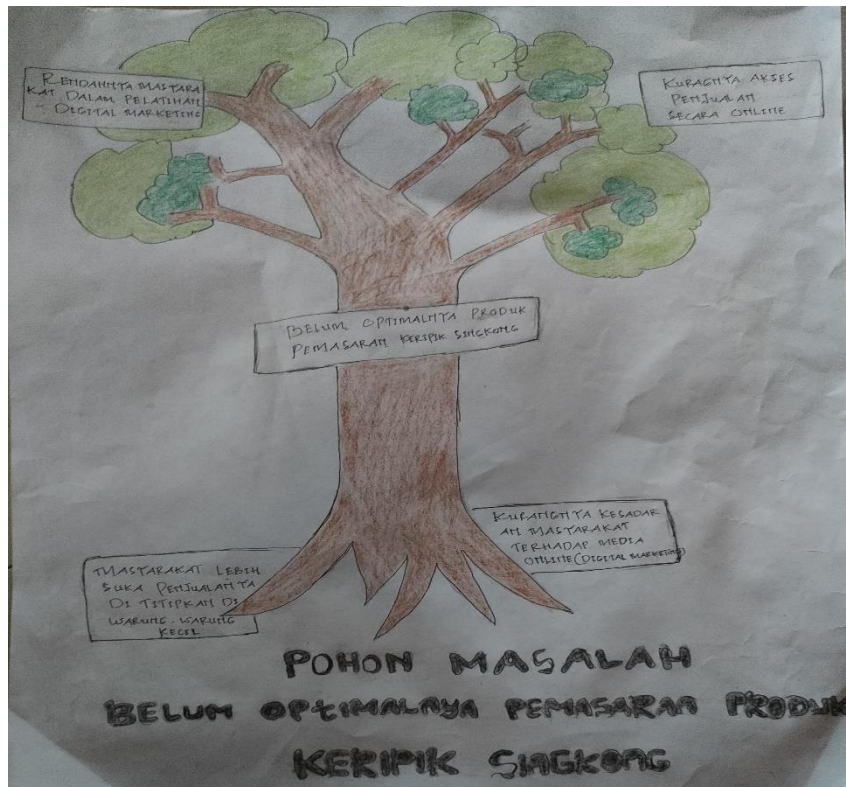 RENDAHNYA MASYARA
KAT DALAM PELATIHAN
DIGITAL MARKETING
KURAGNYA AKSES
PENJUALAN
SECARA ONLINE
BELUM OPTIMALNYA PRODUK
PEMASARAN KERIPIK SINGKONG
KURANGNYA KESADAR
AN MASYARAKAT
TERHADAP MEDIA
ONLINE (DIGITAL MARKETING)
MASYARAKAT LEBIH
SUKA PENJUALANYA
DI TITIPKAN DI
WARUNG-WARUNG
KECIL
POHON MASALAH
BELUM OPTIMALNYA PEMASARAN PRODUK
KERIPIK SINGKONG